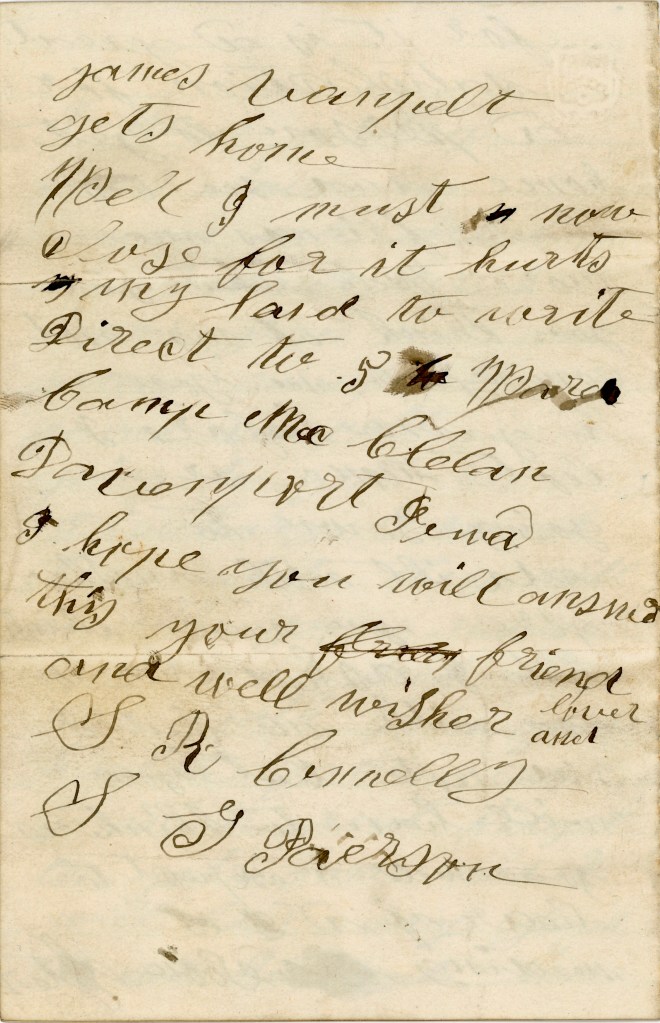 james vanpelt
gets home
Well I must now
close for it hurts
my hand to write
Direct to 5 Ward
Camp Mc Clelan
Davenport Iowa
I hope you will answer
this your friend
and well wisher lover
and
S R Connelly
S G Paerson